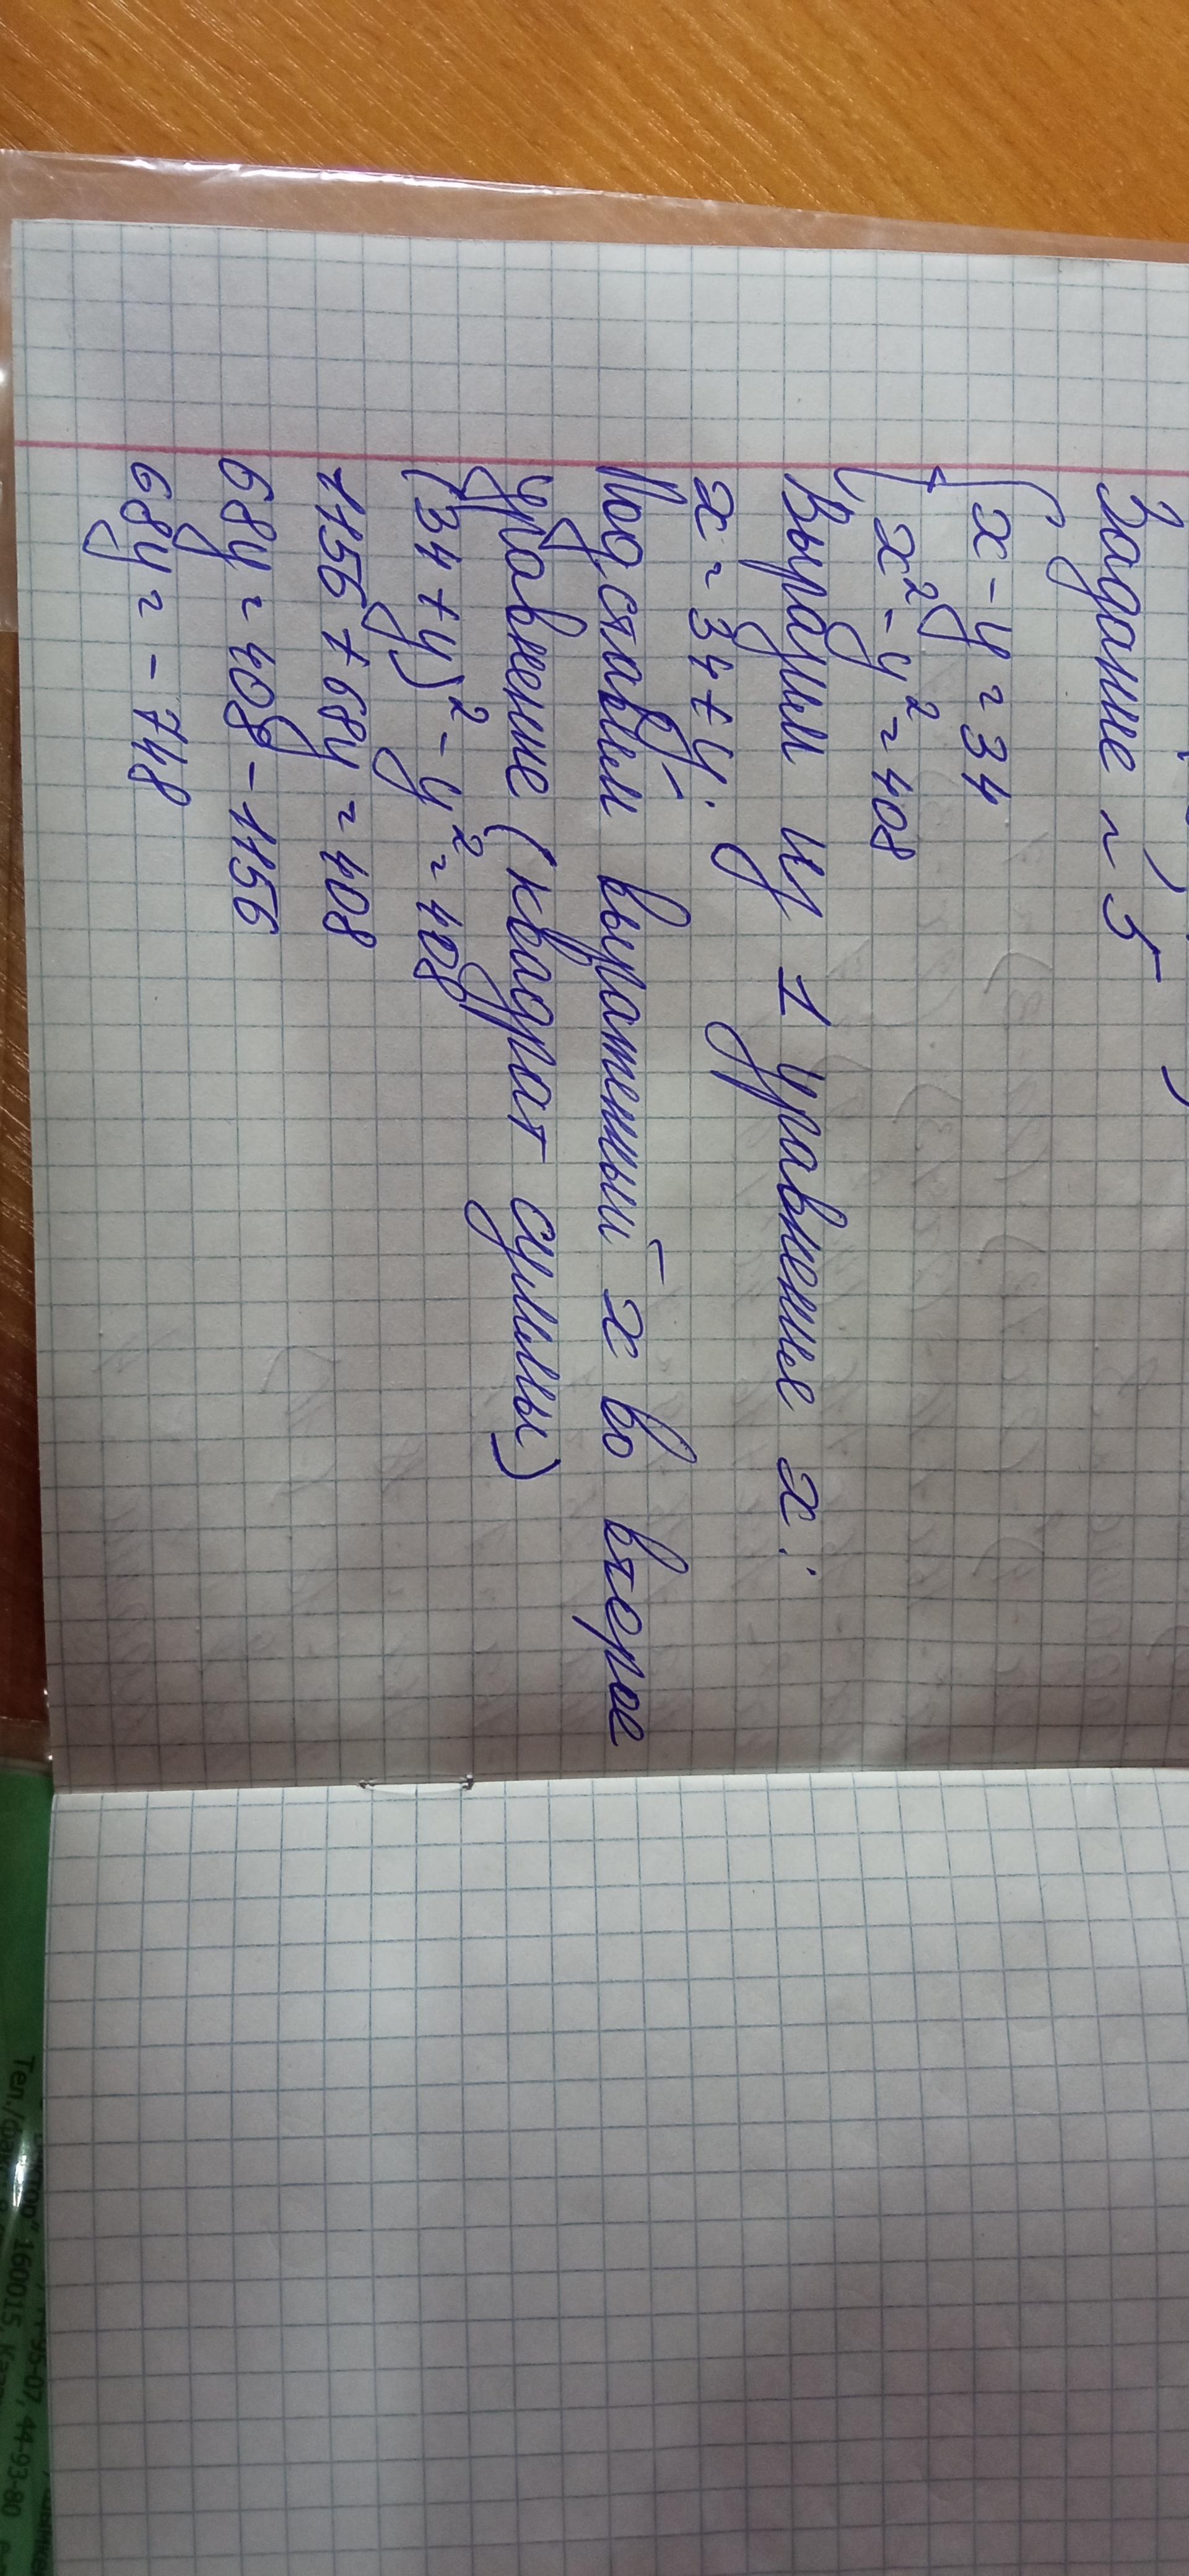 Задание ~ 5
{ x - y = 34
x² - y² = 408
Выразим из 1 уравнение x:
x = 34 + y.
Подставим выраженный x во второе
уравнение (квадрат суммы)
(34 + y)² - y² = 408
1156 + 68y = 408
68y = 408 - 1156
68y = - 748
160015,
95-07, 44-93-80
Тел./